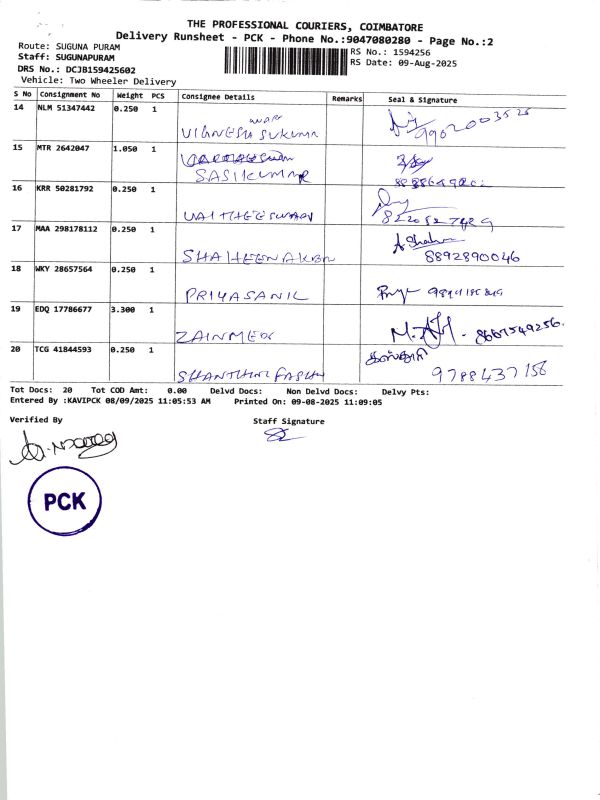 THE PROFESSIONAL COURIERS, COIMBATORE
Delivery Runsheet - PCK - Phone No.:9047080280 - Page No.:2
Route: SUGUNA PURAM
Staff: SUGUNAPURAM
RS No.: 1594256
DRS No.: DCJB159425602
RS Date: 09-Aug-2025
Vehicle: Two Wheeler Delivery
S No Consignment No Weight PCS Consignee Details Remarks Seal & Signature
14 NLM 51347442 0.250 1 VIGNESH SUKUMA 9902003526
15 MTR 2642047 1.050 1
SASIKUMAR
16 KRR 50281792 0.250 1
VAITHEESWARI
17 MAA 298178112 0.250 1
SHAHEENAKBR 8892890046
18 WKY 28657564 0.250 1
PRIYASANIL
19 EDQ 17786677 3.300 1
ZAINMEDX 8667549256.
20 TCG 41844593 0.250 1
SHANTHINI FASHI 9788437156
Tot Docs: 20 Tot COD Amt: 0.00 Delvd Docs: Non Delvd Docs: Delvy Pts:
Entered By :KAVIPCK 08/09/2025 11:05:53 AM Printed On: 09-08-2025 11:09:05
Verified By Staff Signature
PCK